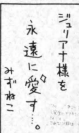 ジュリアナ様を
永遠に愛す…。
みずねこ